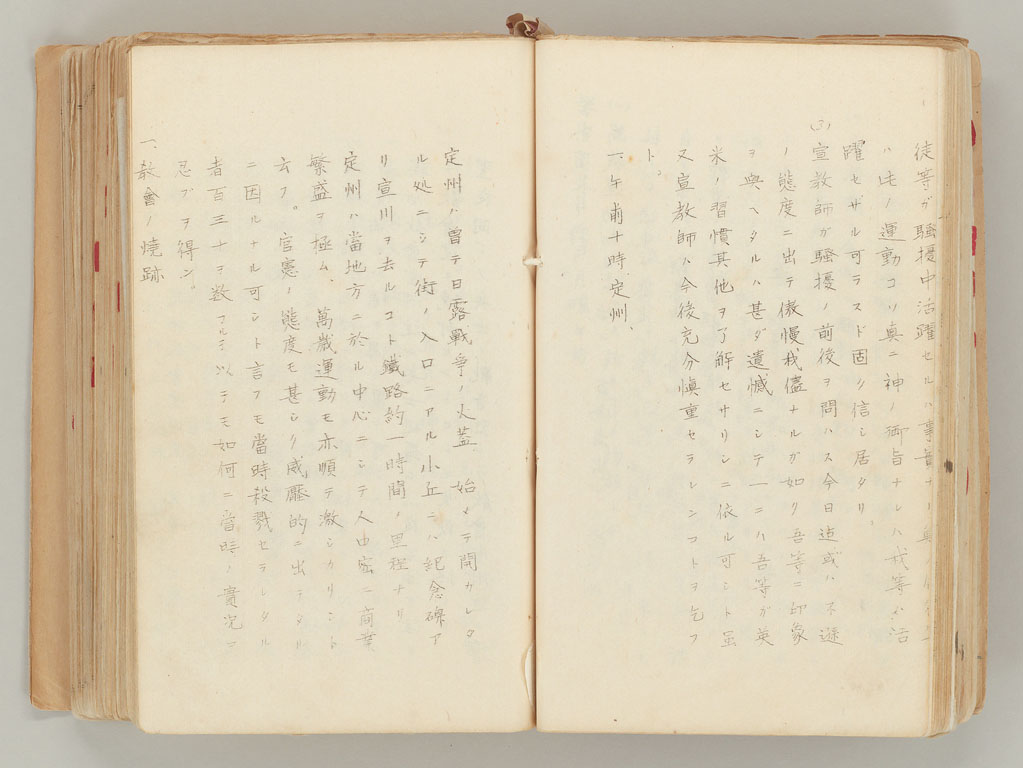 徒等ガ騒擾中活躍セルハ事實ナリ
ハ此ノ運動コソ真ニ神ノ御旨ナレハ我等ガ活
躍セザル可ラスド固ク信シ居タリ。
(3)宣教師ガ騒擾ノ前後ヲ問ハス今日迄或ハ不遜
ノ態度ニ出テ傲慢我儘ナルガ如ク吾等ニ印象
ヲ與ヘタルハ甚ダ遺憾ニシテ一ニハ吾等ガ英
米ノ習慣其他ヲ了解セサリシニ依ル可シト虽
又宣教師ハ今後充分愼重セラレンコトヲ乞フ
ト。
六、午前十時、定州、
定州ハ曽テ日露戰爭ノ火蓋始メテ開カレタ
ル処ニシテ街ノ入口ニアル小丘ニハ紀念碑ア
リ宣川ヲ去ルコト鐵路約一時間ノ里程ナリ
定州ハ當地方ニ於ル中心ニシテ人口密ニ商業
繁盛ヲ極ム、萬歳運動モ亦順テ激シカリシト
云フ。官憲ノ態度モ甚シク威壓的ニ出デタル
ニ因ルナル可シト言フモ當時殺戮セラレタル
者百三十ヲ数フルヲ以テモ如何ニ當時ノ實況ヲ
忍ブヲ得ン。
一、教會ノ燒跡